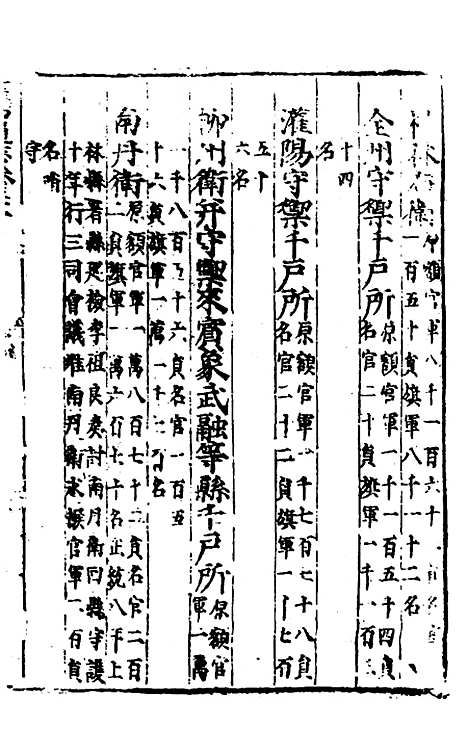 原額官軍八千一百六十
一百五十員旗軍八千一十二名
全州守禦千戶所原額官軍一千一百五十四員
名官二十員旗軍一千一百三
十四
名
灌陽守禦千戶所原額官軍一千七百七十八員
名官二十二員旗軍一千七百
五十
六名
柳州衛并守禦來賓象武融等縣千戶所原額官
軍一萬
一千八百五十六員名官一百五
十六員旗軍一萬一千七百名
南丹衛原額官軍一萬八百七十二員名官二百
二員旗軍一萬六百七十名正統八年上
林縣署縣延檢李祖良奏討南丹衛回縣守護
十年行三司會議准南丹衛求撥官軍一百員
名哨
守